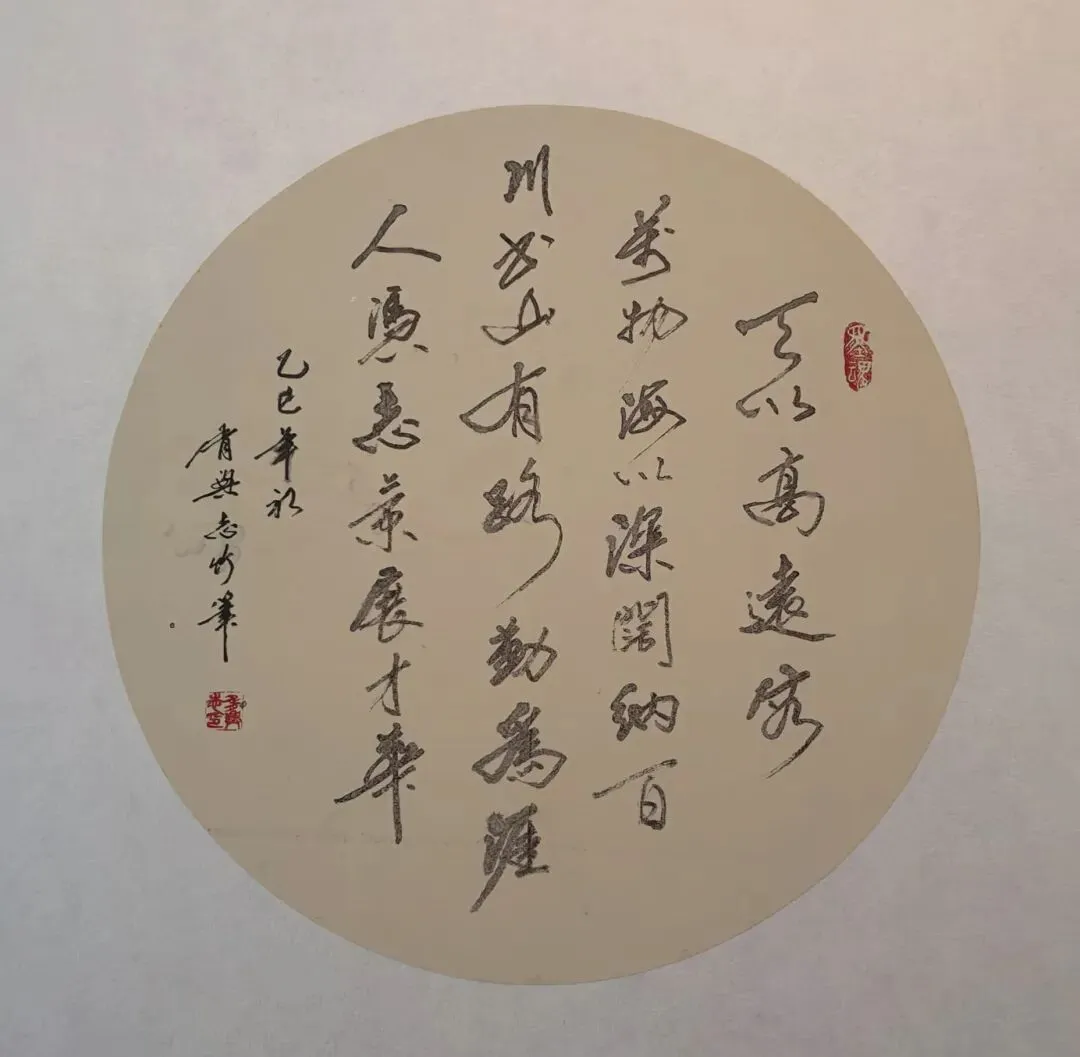 天以高遠容
萬物海以深闊納百
川書山有路勤為涯
人憑展才華
乙巳年初
肖興志竹筆